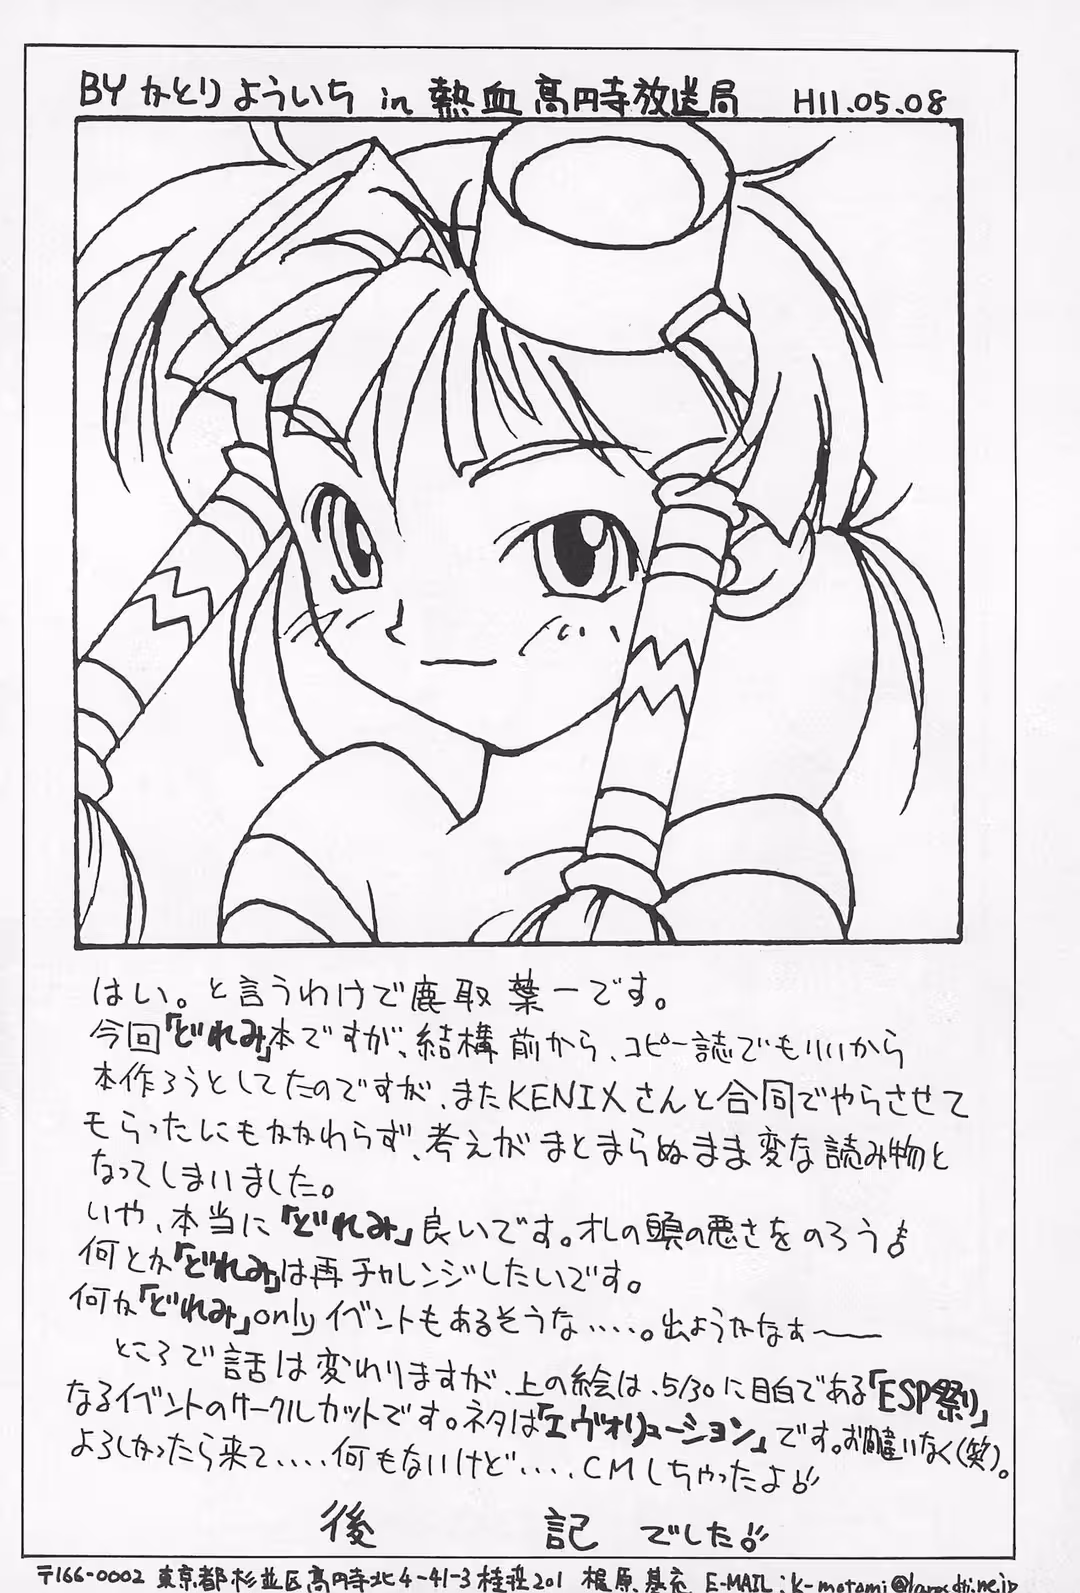 BY かとり よういち in 熱血高円寺放送局 H11.05.08
はい。と言うわけで鹿取葉一です。
今回「どれみ」本ですが、結構前から、コピー誌でもいいから
本作ろうとしてたのですが、またKENIXさんと合同でやらさせて
もらったにもかかわらず、考えがまとまらぬまま変な読み物と
なってしまいました。
いや、本当に「どれみ」良いです。オレの頭の悪さをのろう!!
何とか「どれみ」は再チャレンジしたいです。
何か「どれみ」onlyイベントもあるそうな‥‥。出ようかなぁ〜
ところで話は変わりますが、上の絵は、5/30に目白である「ESP祭り」
なるイベントのサークルカットです。ネタは「エヴォリューション」です。お間違いなく(笑)。
よろしかったら来て‥‥‥何もないけど‥‥CMしちゃったよ!!
後 記 でした!!
〒166-0002 東京都杉並区高円寺北4-41-3 201 梶原 E-MAIL: